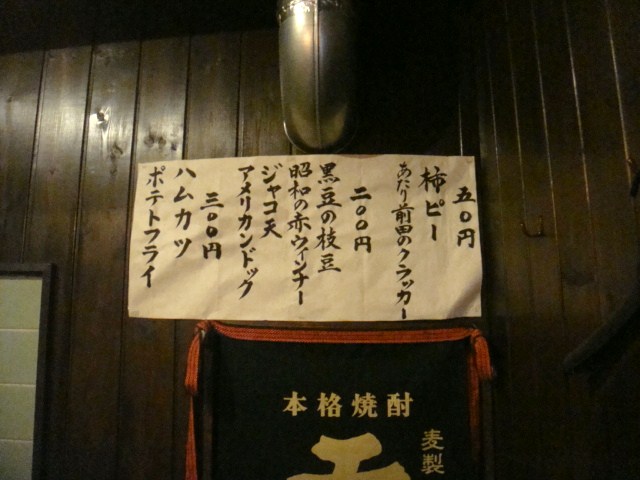 五〇円
柿ピー
あたり前田のクラッカー
二〇〇円
黒豆の枝豆
昭和の赤ウィンナー
ジャコ天
アメリカンドック
三〇〇円
ハムカツ
ポテトフライ
本格焼酎
麦製